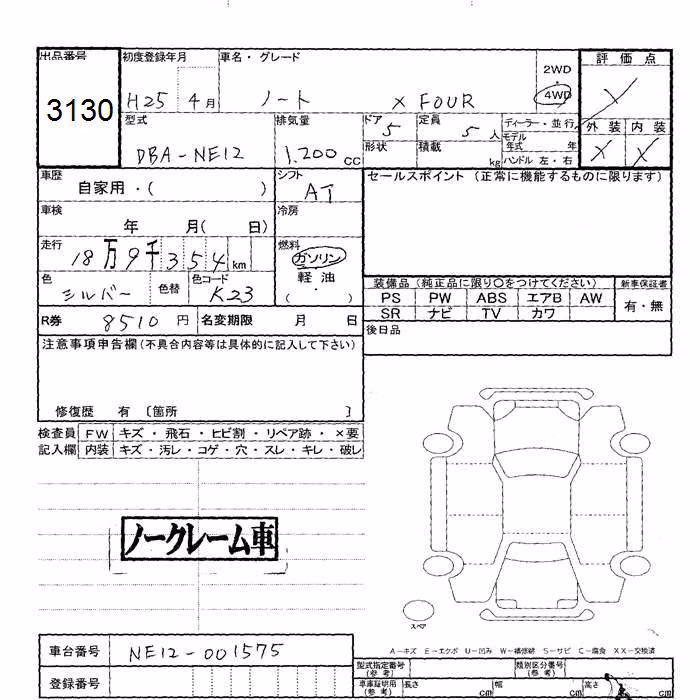 出品番号 初度登録年月 車名・グレード 評価点
3130 H25 4月 ノート X FOUR 2WD 4WD X
型式 排気量 ドア 定員 ディーラー・並行 外装 内装
DBA-NE12 1.200cc 5 5人 モデル年式 年 X X
形状 積載 kg ハンドル 左・右
車歴 自家用・( ) シフト AT セールスポイント (正常に機能するものに限ります)
車検 年 月( 日) 冷房
走行 18万9千354km 燃料 ガソリン
軽油
( ・ )
色 シルバー 色替 色コード K23
装備品 (純正品に限り○をつけてください) 新車保証書
PS PW ABS エアB AW 有・無
SR ナビ TV カワ
R券 8510円 名変期限 月 日
後日品
注意事項申告欄(不具合内容等は具体的に記入して下さい)
修復歴 有 〔箇所 〕
検査員 FW キズ・飛石・ヒビ割・リペア跡・×要
記入欄 内装 キズ・汚レ・コゲ・穴・スレ・キレ・破レ
ノークレーム車
スペア
A-キズ E-エクボ U-凹み W-補修跡 S-サビ C-腐食 XX-交換済
車台番号 NE12-001575
型式指定番号(参考) 類別区分番号(参考)
登録番号
車庫証明用(参考) 長さ cm 幅 cm 高さ cm